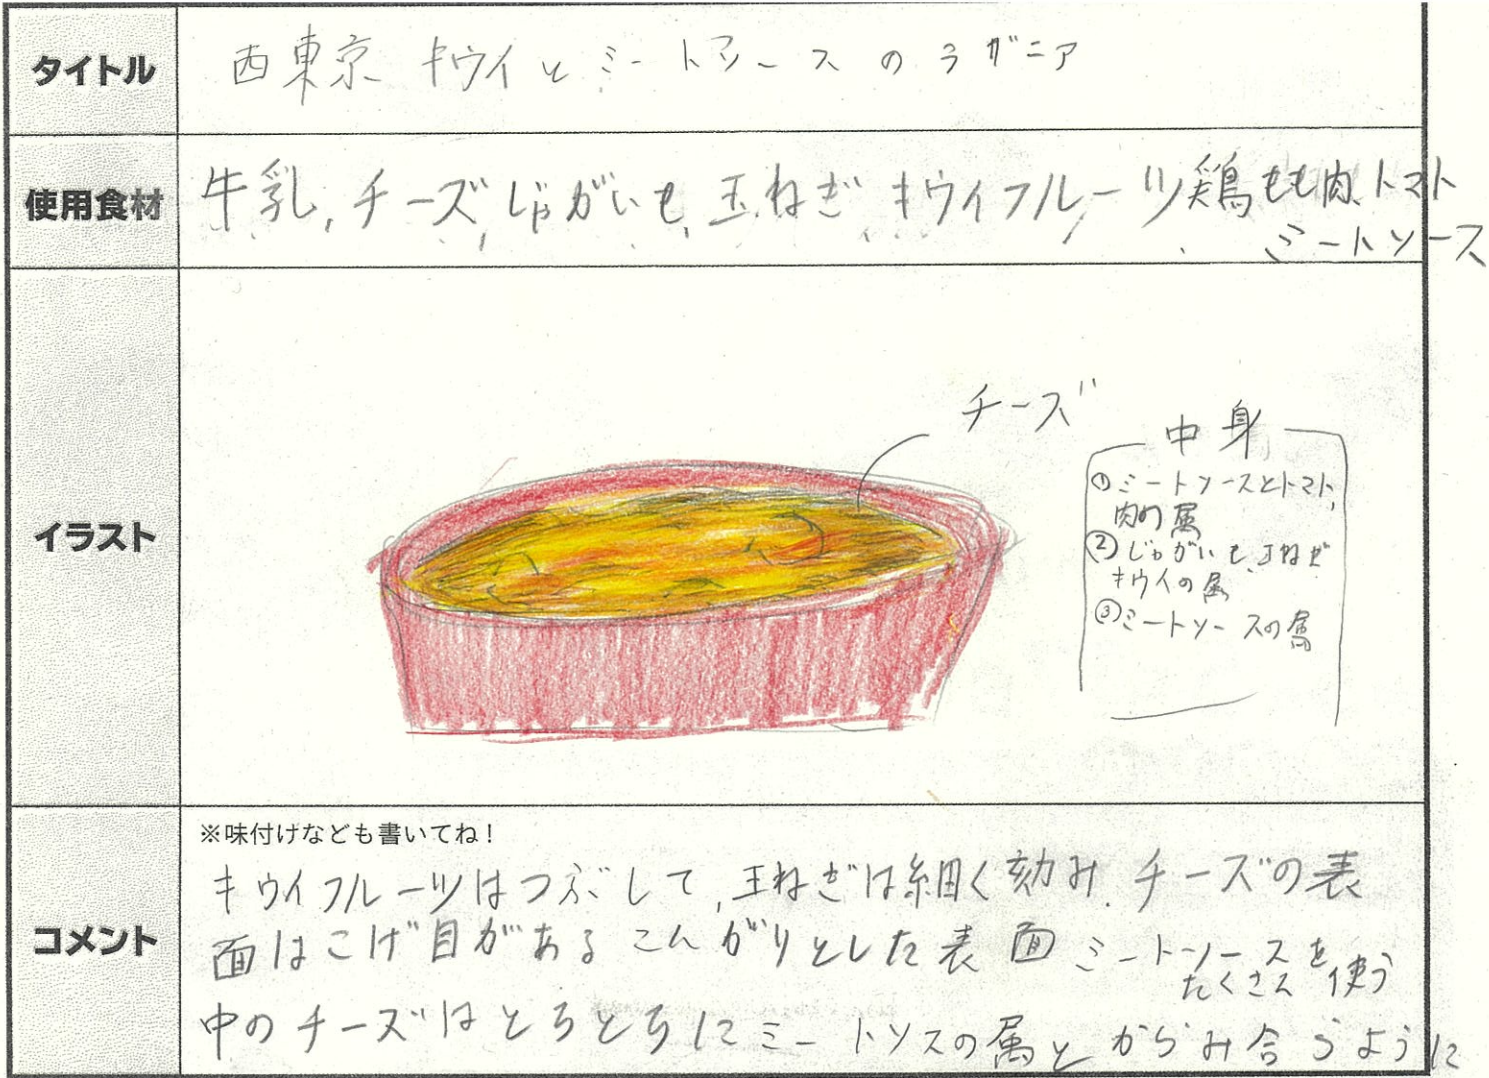 タイトル
西東京 キウイとミートソースのラザニア
使用食材
牛乳、チーズ じゃがいも、玉ねぎ キウイフルーツ 鶏もも肉、トマト
ミートソース
イラスト
チーズ
中身
①ミートソースとトマト、
肉の属
②じゃがいも、玉ねぎ
キウイの属
③ミートソースの属
コメント
※味付けなども書いてね！
キウイフルーツはつぶして、玉ねぎは細く刻み、チーズの表
面はこげ目がある こんがりとした表面 ミートソースを
たくさん使う
中のチーズはとろとろにミートソスの属とからみ合うように